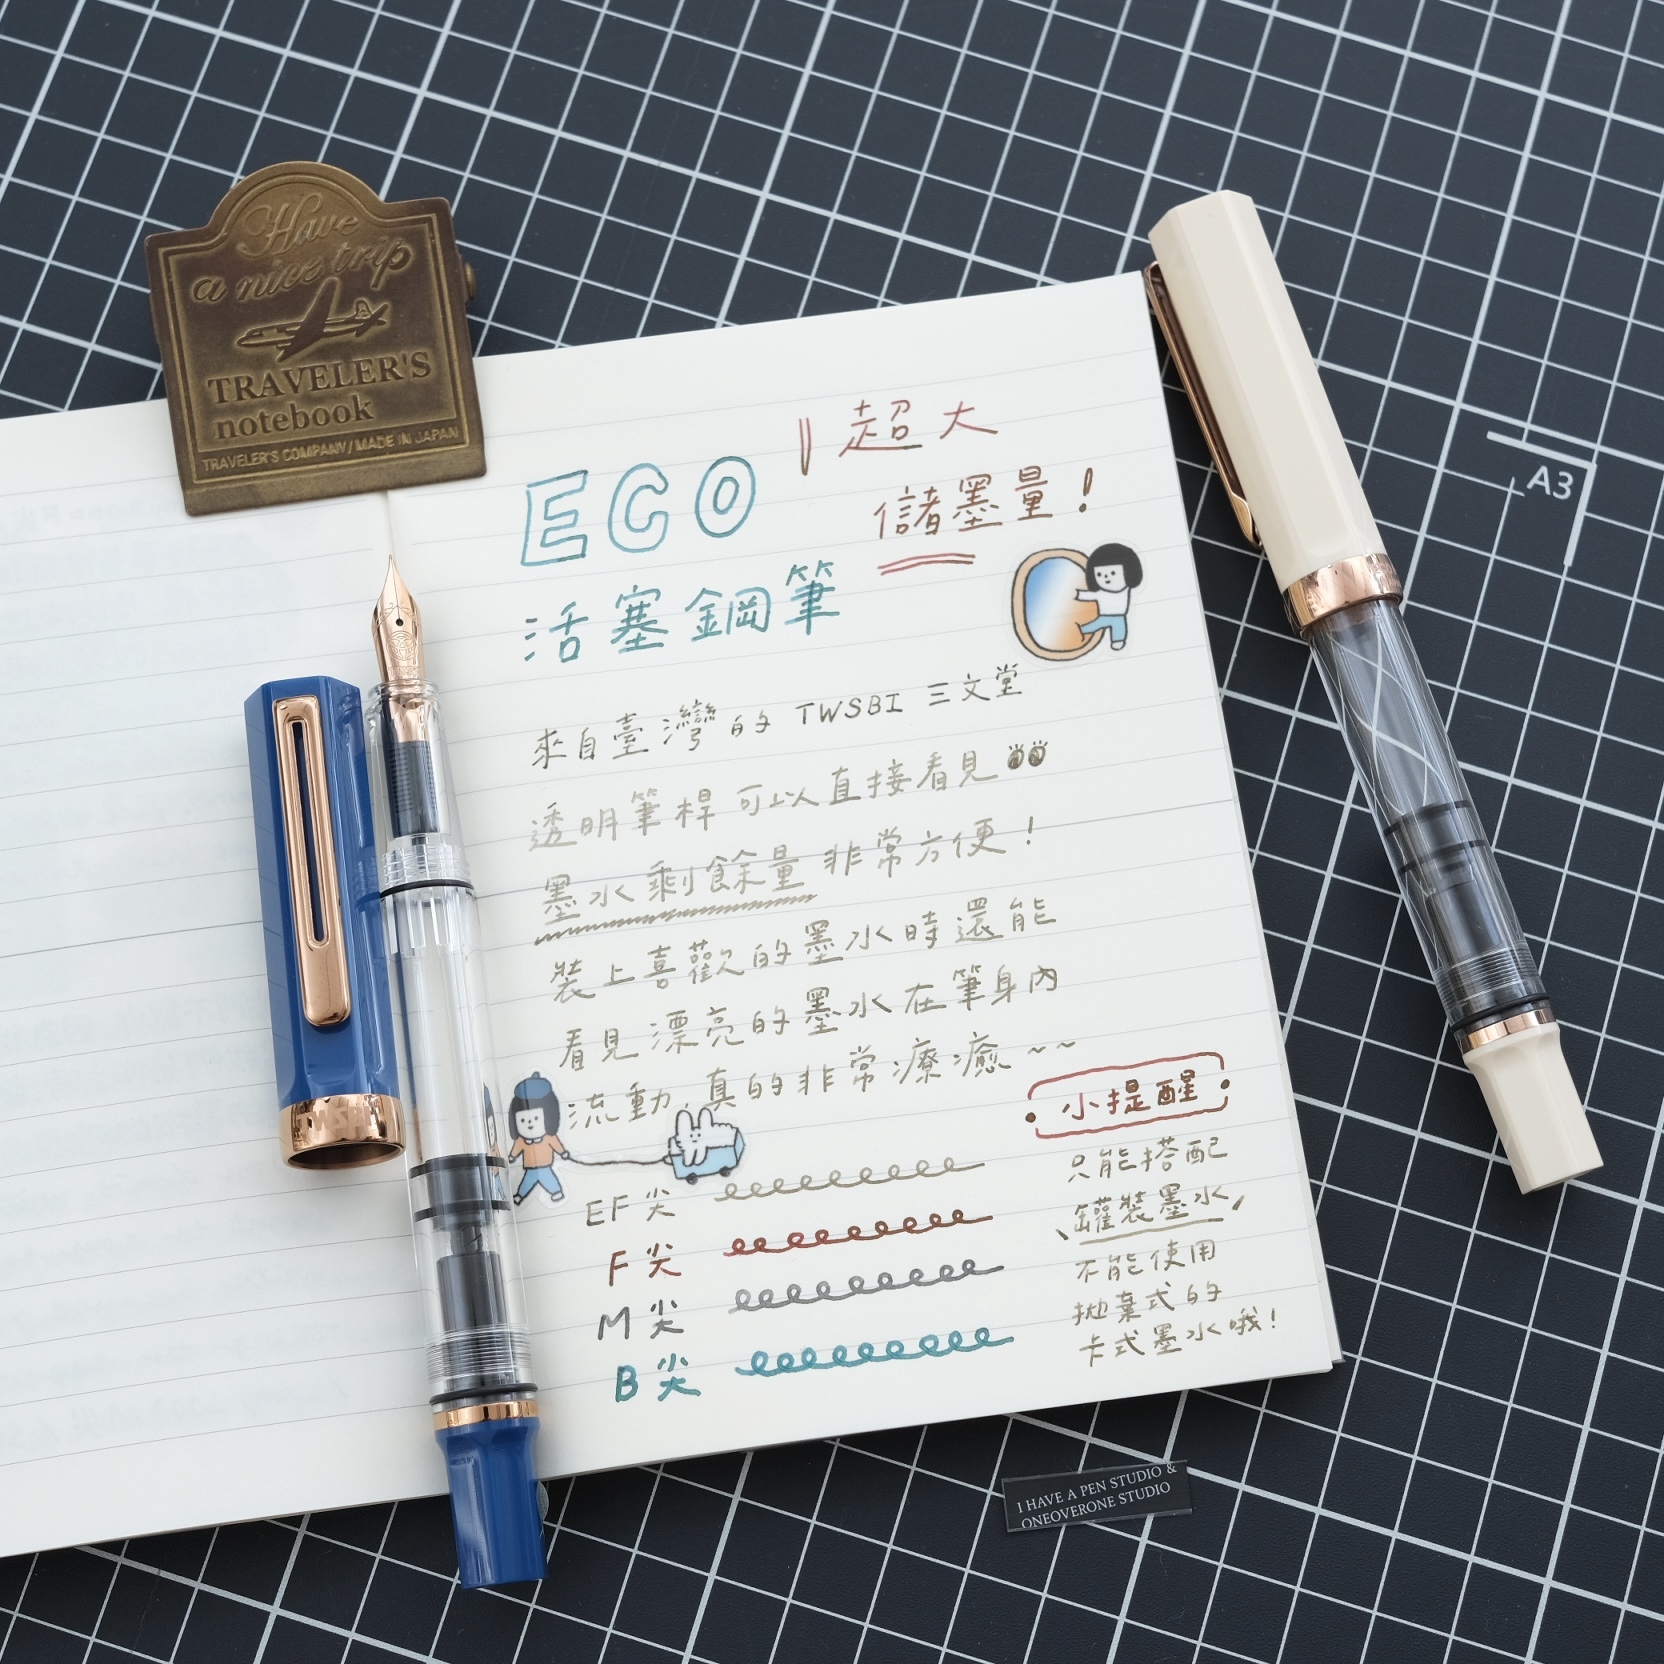 Have
a nice trip
TRAVELER'S
notebook
TRAVELER'S COMPANY/MADE IN JAPAN
ECO
超大
儲墨量！
活塞鋼筆
來自臺灣的 TWSBI 三文堂
透明筆桿可以直接看見
墨水剩餘量非常方便！
裝上喜歡的墨水時還能
看見漂亮的墨水在筆身內
流動，真的非常療癒~~
EF尖
F尖
M尖
B尖
小提醒
只能搭配
罐裝墨水
不能使用
拋棄式的
卡式墨水哦！
A3
I HAVE A PEN STUDIO &
ONEOVERONE STUDIO